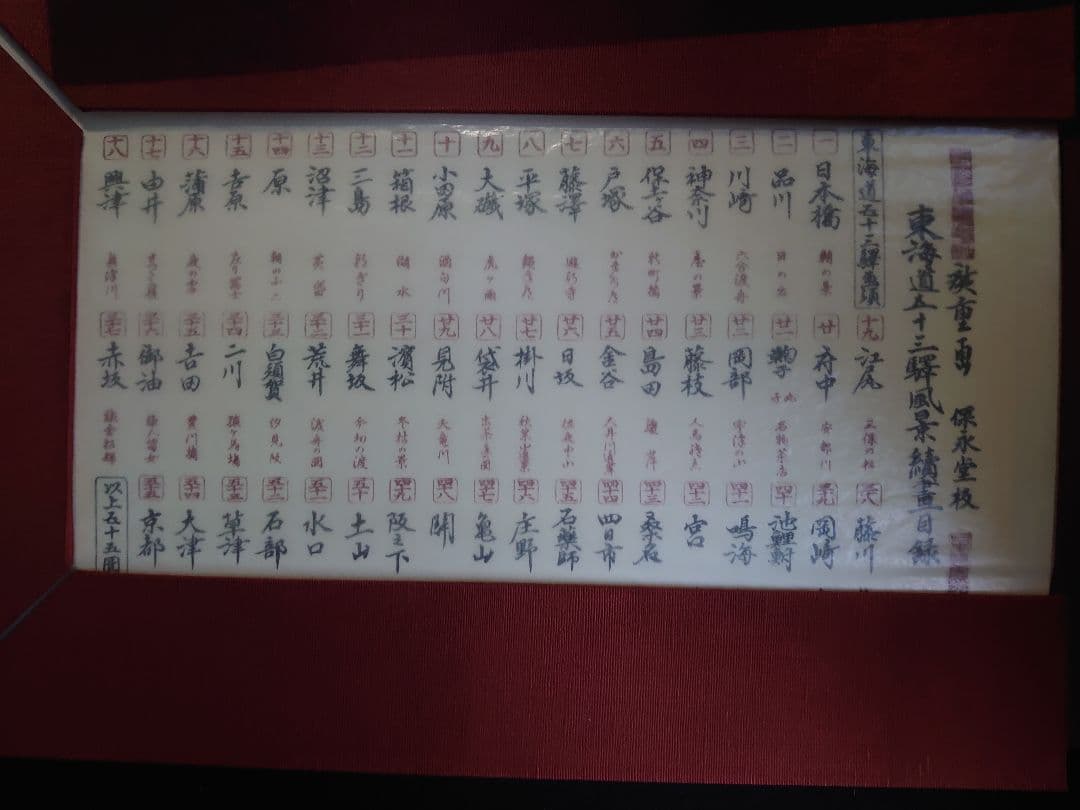 廣重画 保永堂板
東海道五十三驛風景續画目録
東海道五十三驛画順
一 日本橋
二 品川 日の出
三 川崎 六合渡舟
四 神奈川 台の景
五 保土ヶ谷 新町橋
六 戸塚
七 藤澤 遊行寺
八 平塚 縄手道
九 大磯 虎ヶ雨
十 小田原 酒匂川
十一 箱根 湖水
十二 三島 朝ぎり
十三 沼津 黄昏
十四 原 朝のふじ
十五 吉原 左り富士
十六 蒲原 夜の雪
十七 由井
十八 興津 興津川
十九 江尻 三保の松
廿 府中 安部川
廿一 鞠子 名物茶店
廿二 岡部 宇津の山
廿三 藤枝 人馬継立
廿四 島田
廿五 金谷
廿六 日坂 佐夜中山
廿七 掛川 秋葉山遠景
廿八 袋井 出茶屋圖
廿九 見附 天竜川
三十 濱松 冬枯の景
三十一 舞坂 今切の渡
三十二 荒井 渡舟の圖
三十三 白須賀 汐見坂
三十四 二川 猿ヶ馬場
三十五 吉田 豊川橋
三十六 御油 旅人留女
三十七 赤坂
三十八 藤川
三十九 岡崎
四十 池鯉鮒
四十一 鳴海
四十二 宮
四十三 桑名
四十四 四日市
四十五 石薬師
四十六 庄野
四十七 亀山
四十八 関
四十九 阪之下
五十 土山
五十一 水口
五十二 石部
五十三 草津
五十四 大津
五十五 京都
以上五十五圖